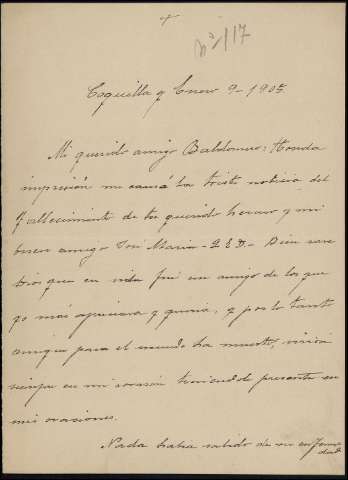 +
Nº 117
Coquilla y Enero 9-1905.
Mi querido amigo Baldomero: Honda
impresión me causó la triste noticia del
fallecimiento de tu querido hermano y mi
buen amigo José Maria - Q E D - Bien sabe
Dios que en vida fué un amigo de los que
yo más apreciara y queria, y por lo tanto
aunque para el mundo ha muerto, vivirá
siempre en mi corazón teniendole presente en
mis oraciones.
Nada habia sabido de su enferme
dad